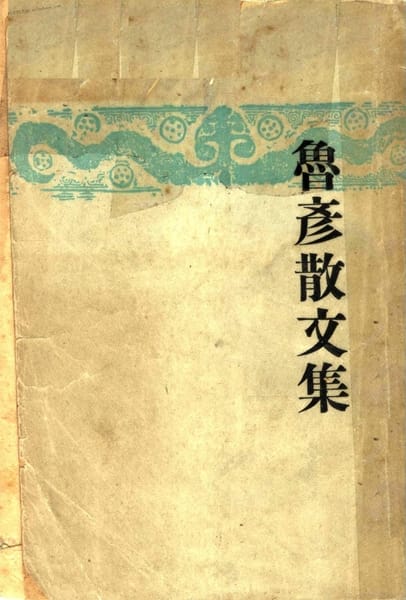 魯彥散文集